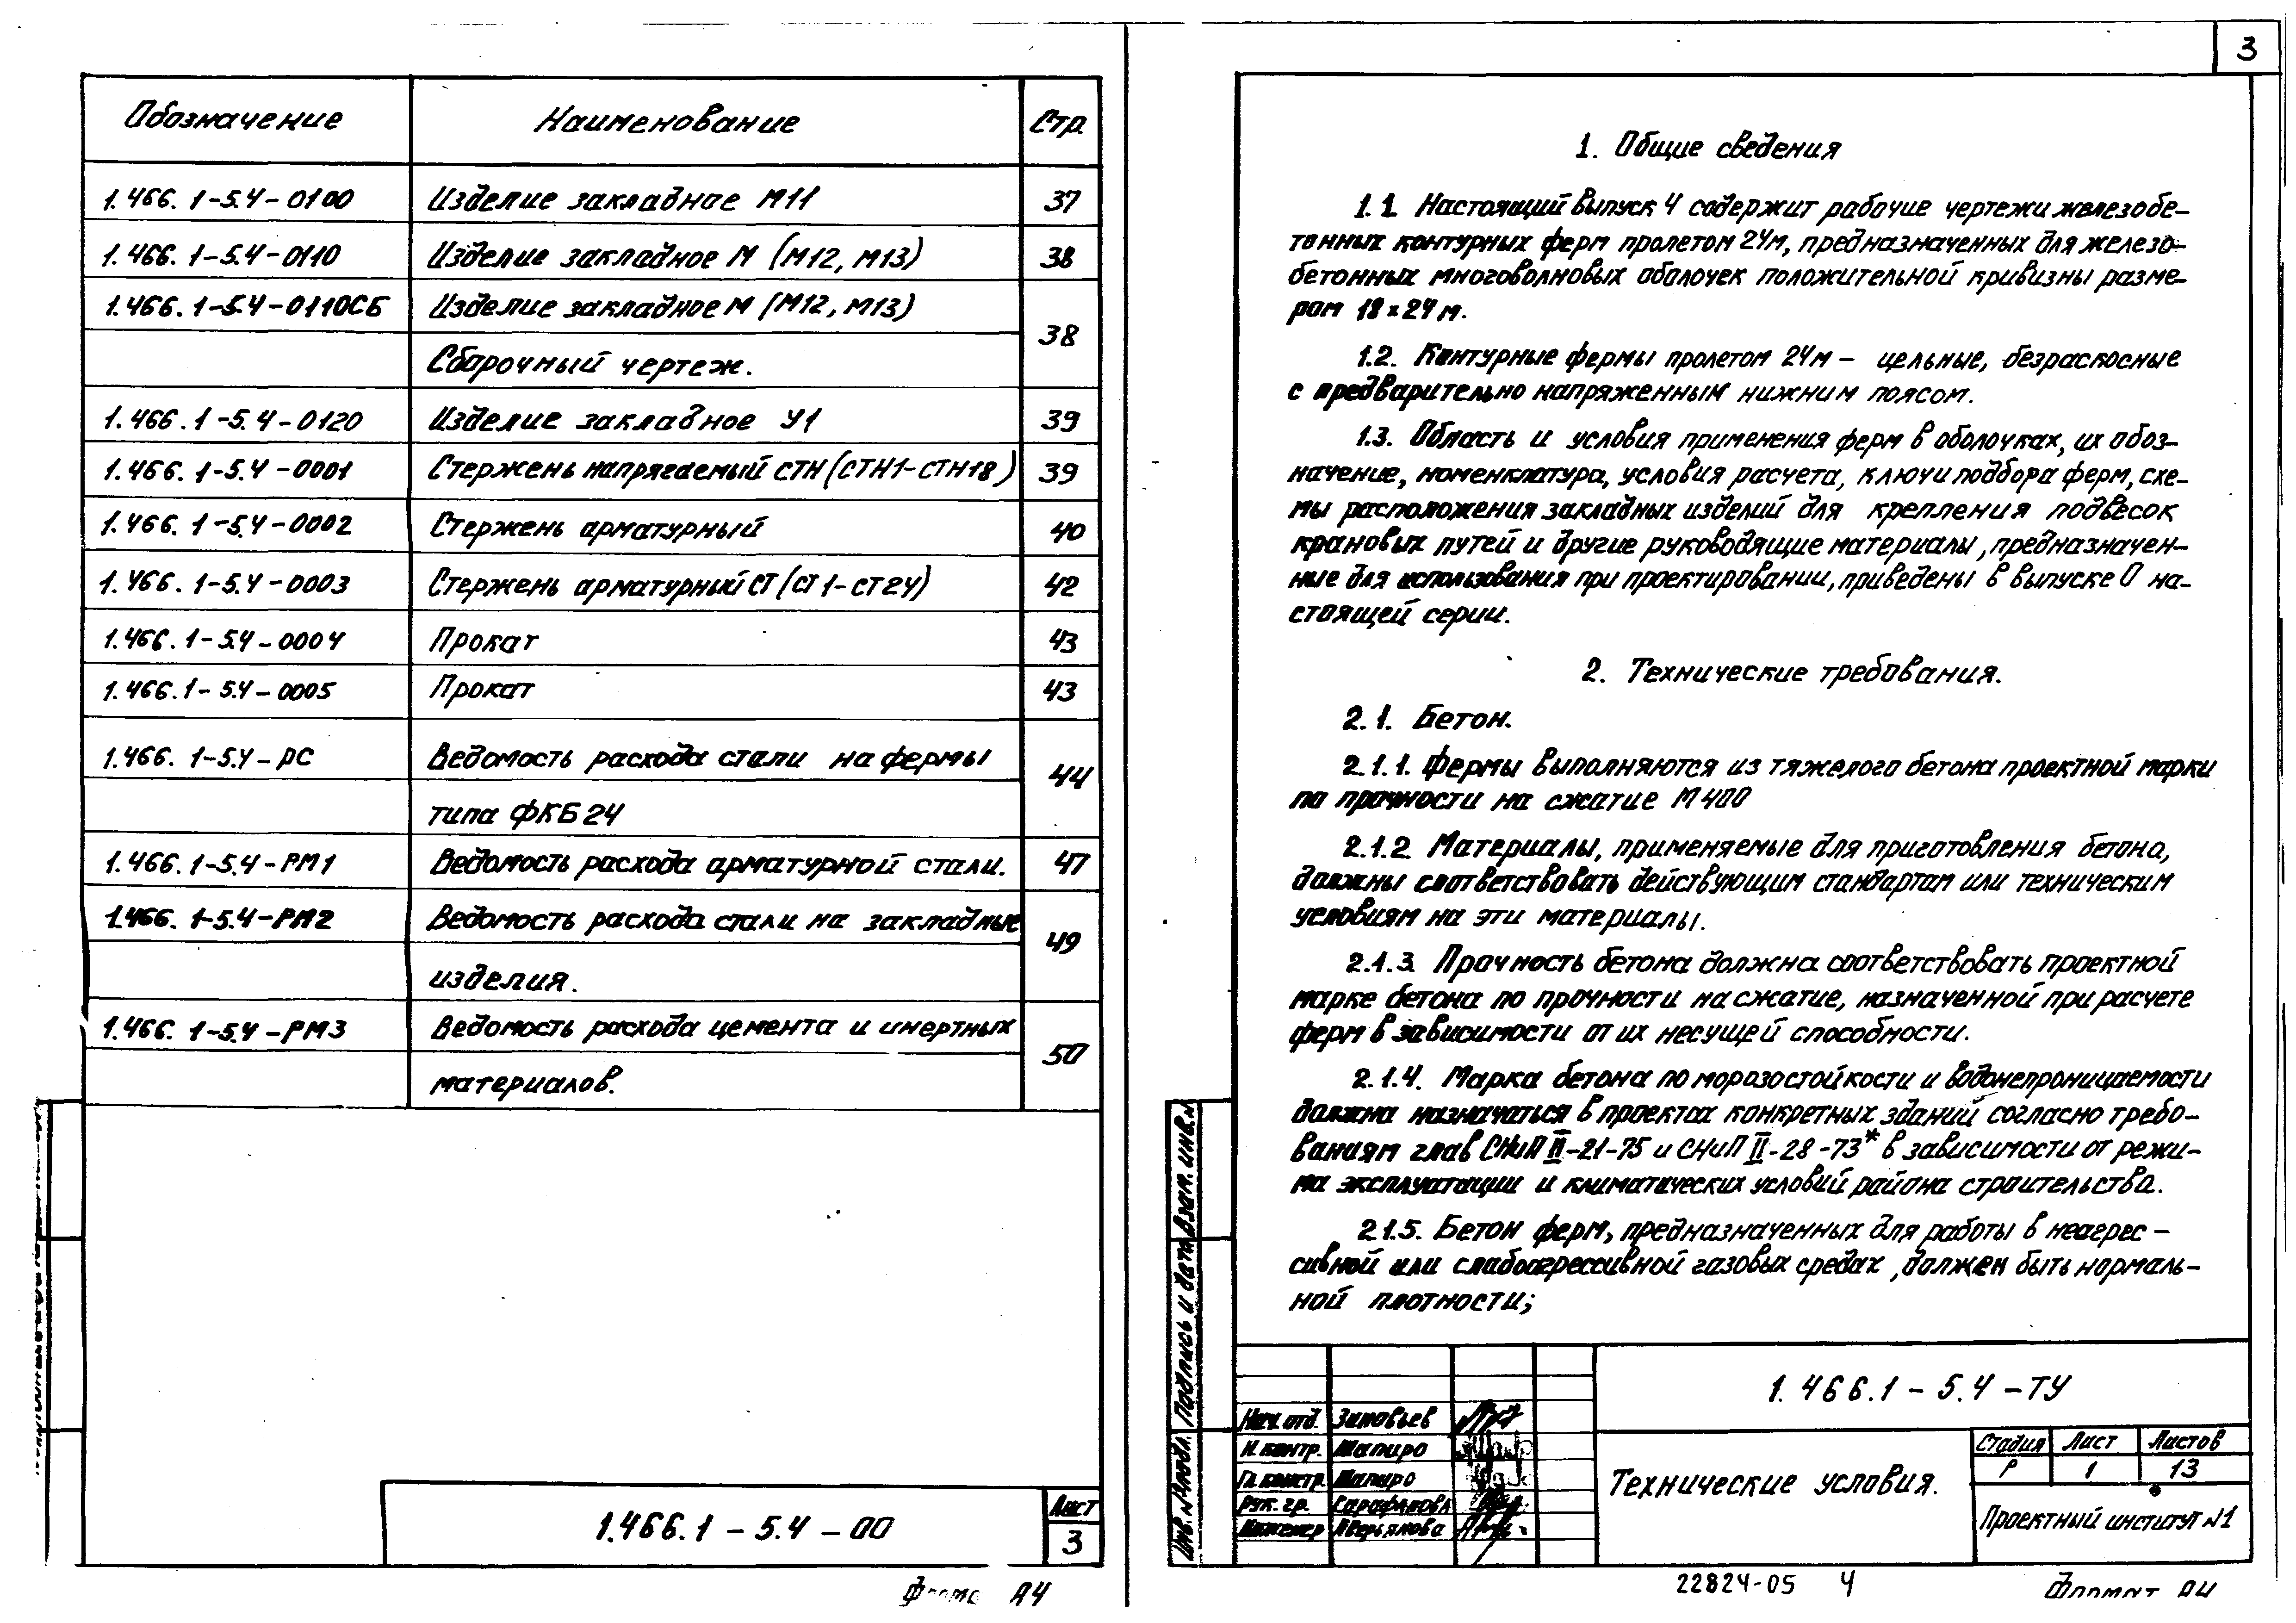 Обозначение Наименование Стр.
1.466.1-5.4-0100 Изделие закладное М11 37
1.466.1-5.4-0110 Изделие закладное М (М12, М13) 38
1.466.1-5.4-0110СБ Изделие закладное М (М12, М13)
Сборочный чертеж. 38
1.466.1-5.4-0120 Изделие закладное У1 39
1.466.1-5.4-0001 Стержень напрягаемый СТН (СТН1-СТН18) 39
1.466.1-5.4-0002 Стержень арматурный 40
1.466.1-5.4-0003 Стержень арматурный СТ (СТ1-СТ24) 42
1.466.1-5.4-0004 Прокат 43
1.466.1-5.4-0005 Прокат 43
1.466.1-5.4-РС Ведомость расхода стали на фермы
типа ФКБ24 44
1.466.1-5.4-РМ1 Ведомость расхода арматурной стали. 47
1.466.1-5.4-РМ2 Ведомость расхода стали на закладные
изделия. 49
1.466.1-5.4-РМ3 Ведомость расхода цемента и инертных
материалов. 50
1.466.1-5.4-00
Лист
3
А4
3
1. Общие сведения
1.1. Настоящий выпуск 4 содержит рабочие чертежи железобе-
тонных контурных ферм пролетом 24м, предназначенных для железо-
бетонных многоволновых оболочек положительной кривизны разме-
ром 18х24м.
1.2. Контурные фермы пролетом 24м – цельные, безраскосные
с предварительно напряженным нижним поясом.
1.3. Область и условия применения ферм в оболочках, их обоз-
начение, номенклатура, условия расчета, ключи подбора ферм, схе-
мы расположения закладных изделий для крепления подвесок
крановых путей и другие руководящие материалы, предназначен-
ные для использования при проектировании, приведены в выпуске 0 на-
стоящей серии.
2. Технические требования.
2.1. Бетон.
2.1.1. Фермы выполняются из тяжелого бетона проектной марки
по прочности на сжатие М400
2.1.2. Материалы, применяемые для приготовления бетона,
должны соответствовать действующим стандартам или техническим
условиям на эти материалы.
2.1.3. Прочность бетона должна соответствовать проектной
марке бетона по прочности на сжатие, назначенной при расчете
ферм в зависимости от их несущей способности.
2.1.4. Марка бетона по морозостойкости и водонепроницаемости
должна назначаться в проектах конкретных зданий согласно требо-
ваниям глав СНиП II-21-75 и СНиП II-28-73* в зависимости от режи-
ма эксплуатации и климатических условий района строительства.
2.1.5. Бетон ферм, предназначенных для работы в неагрес-
сивной или слабоагрессивной газовых средах, должен быть нормаль-
ной плотности;
Взам. инв. №
Подпись и дата
Инв. № подл.
1.466.1-5.4-ТУ
Нач. отд. Зиновьев
Н. контр. Шапиро
Гл. констр. Шапиро
Рук. гр. Сарафанова
Инженер Аверьянова
Технические условия.
Стадия Лист Листов
Р 1 13
Проектный институт №1
22824-05 4
Формат А4